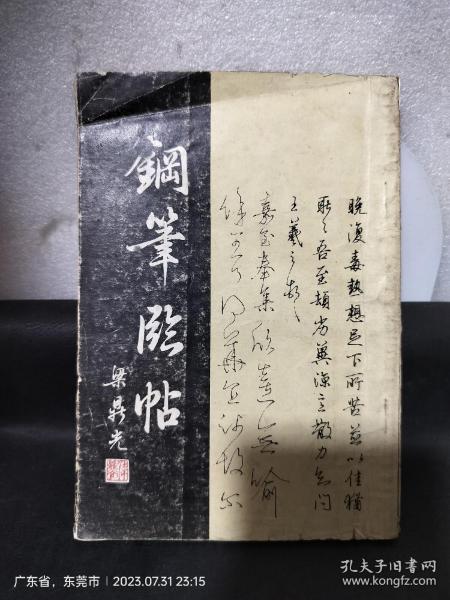 鋼筆臨帖
梁鼎光
晚復毒熱想足下所苦並以佳猶
耿々吾至頓劣冀涼言散力知問
王羲之頓々
嘉至奉集欣喜無喻
餘可耳得華直疏故爾
广东省，东莞市 | 2023.07.31 23:15
孔夫子旧书网
www.kongfz.com